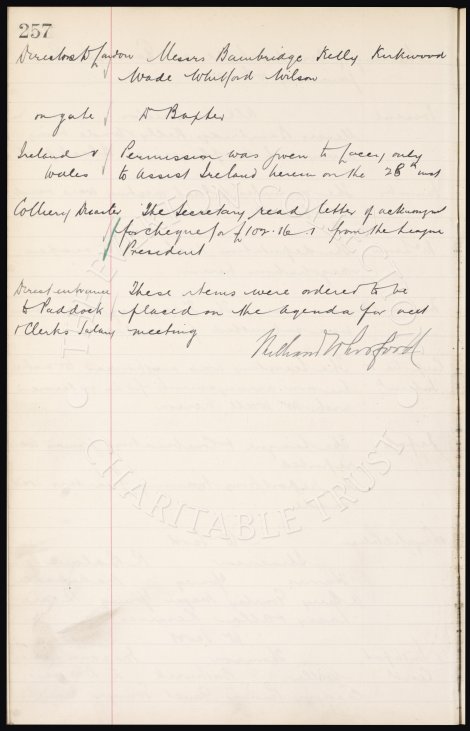 257
Directors to London Messrs Bainbridge Kelly Kirkwood
Wade Whitford Wilson
on gate Dr Baxter
Ireland v Permission was given to Lacey only
Wales to assist Ireland herein on the 28th inst
Colliery Disaster The Secretary read letter of
for cheque for £102.16.1 from the League
President
Direct entrance These items were ordered to be
to Paddock placed on the agenda for next
& Clerks Salary meeting
THE COLLECTION
CHARITABLE TRUST